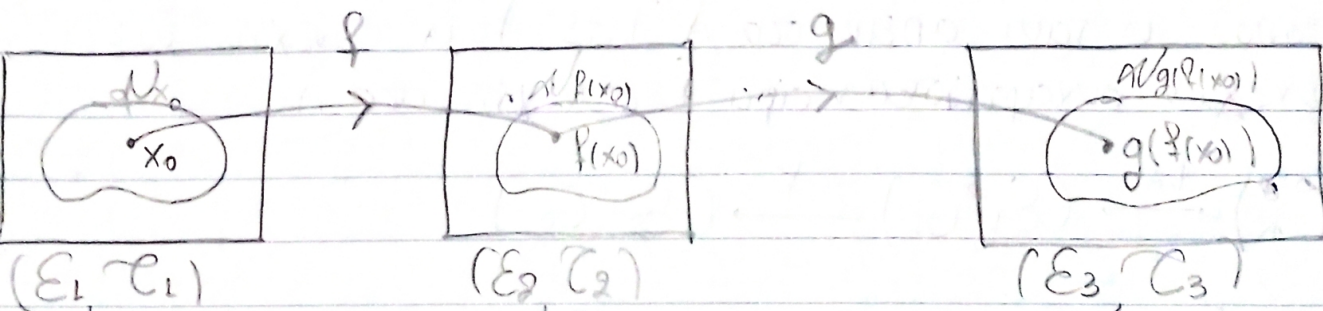 f g
𝒩x₀ 𝒩f(x₀) 𝒩g(f(x₀))
x₀ f(x₀) g(f(x₀))
(E₁, τ₁) (E₂, τ₂) (E₃, τ₃)